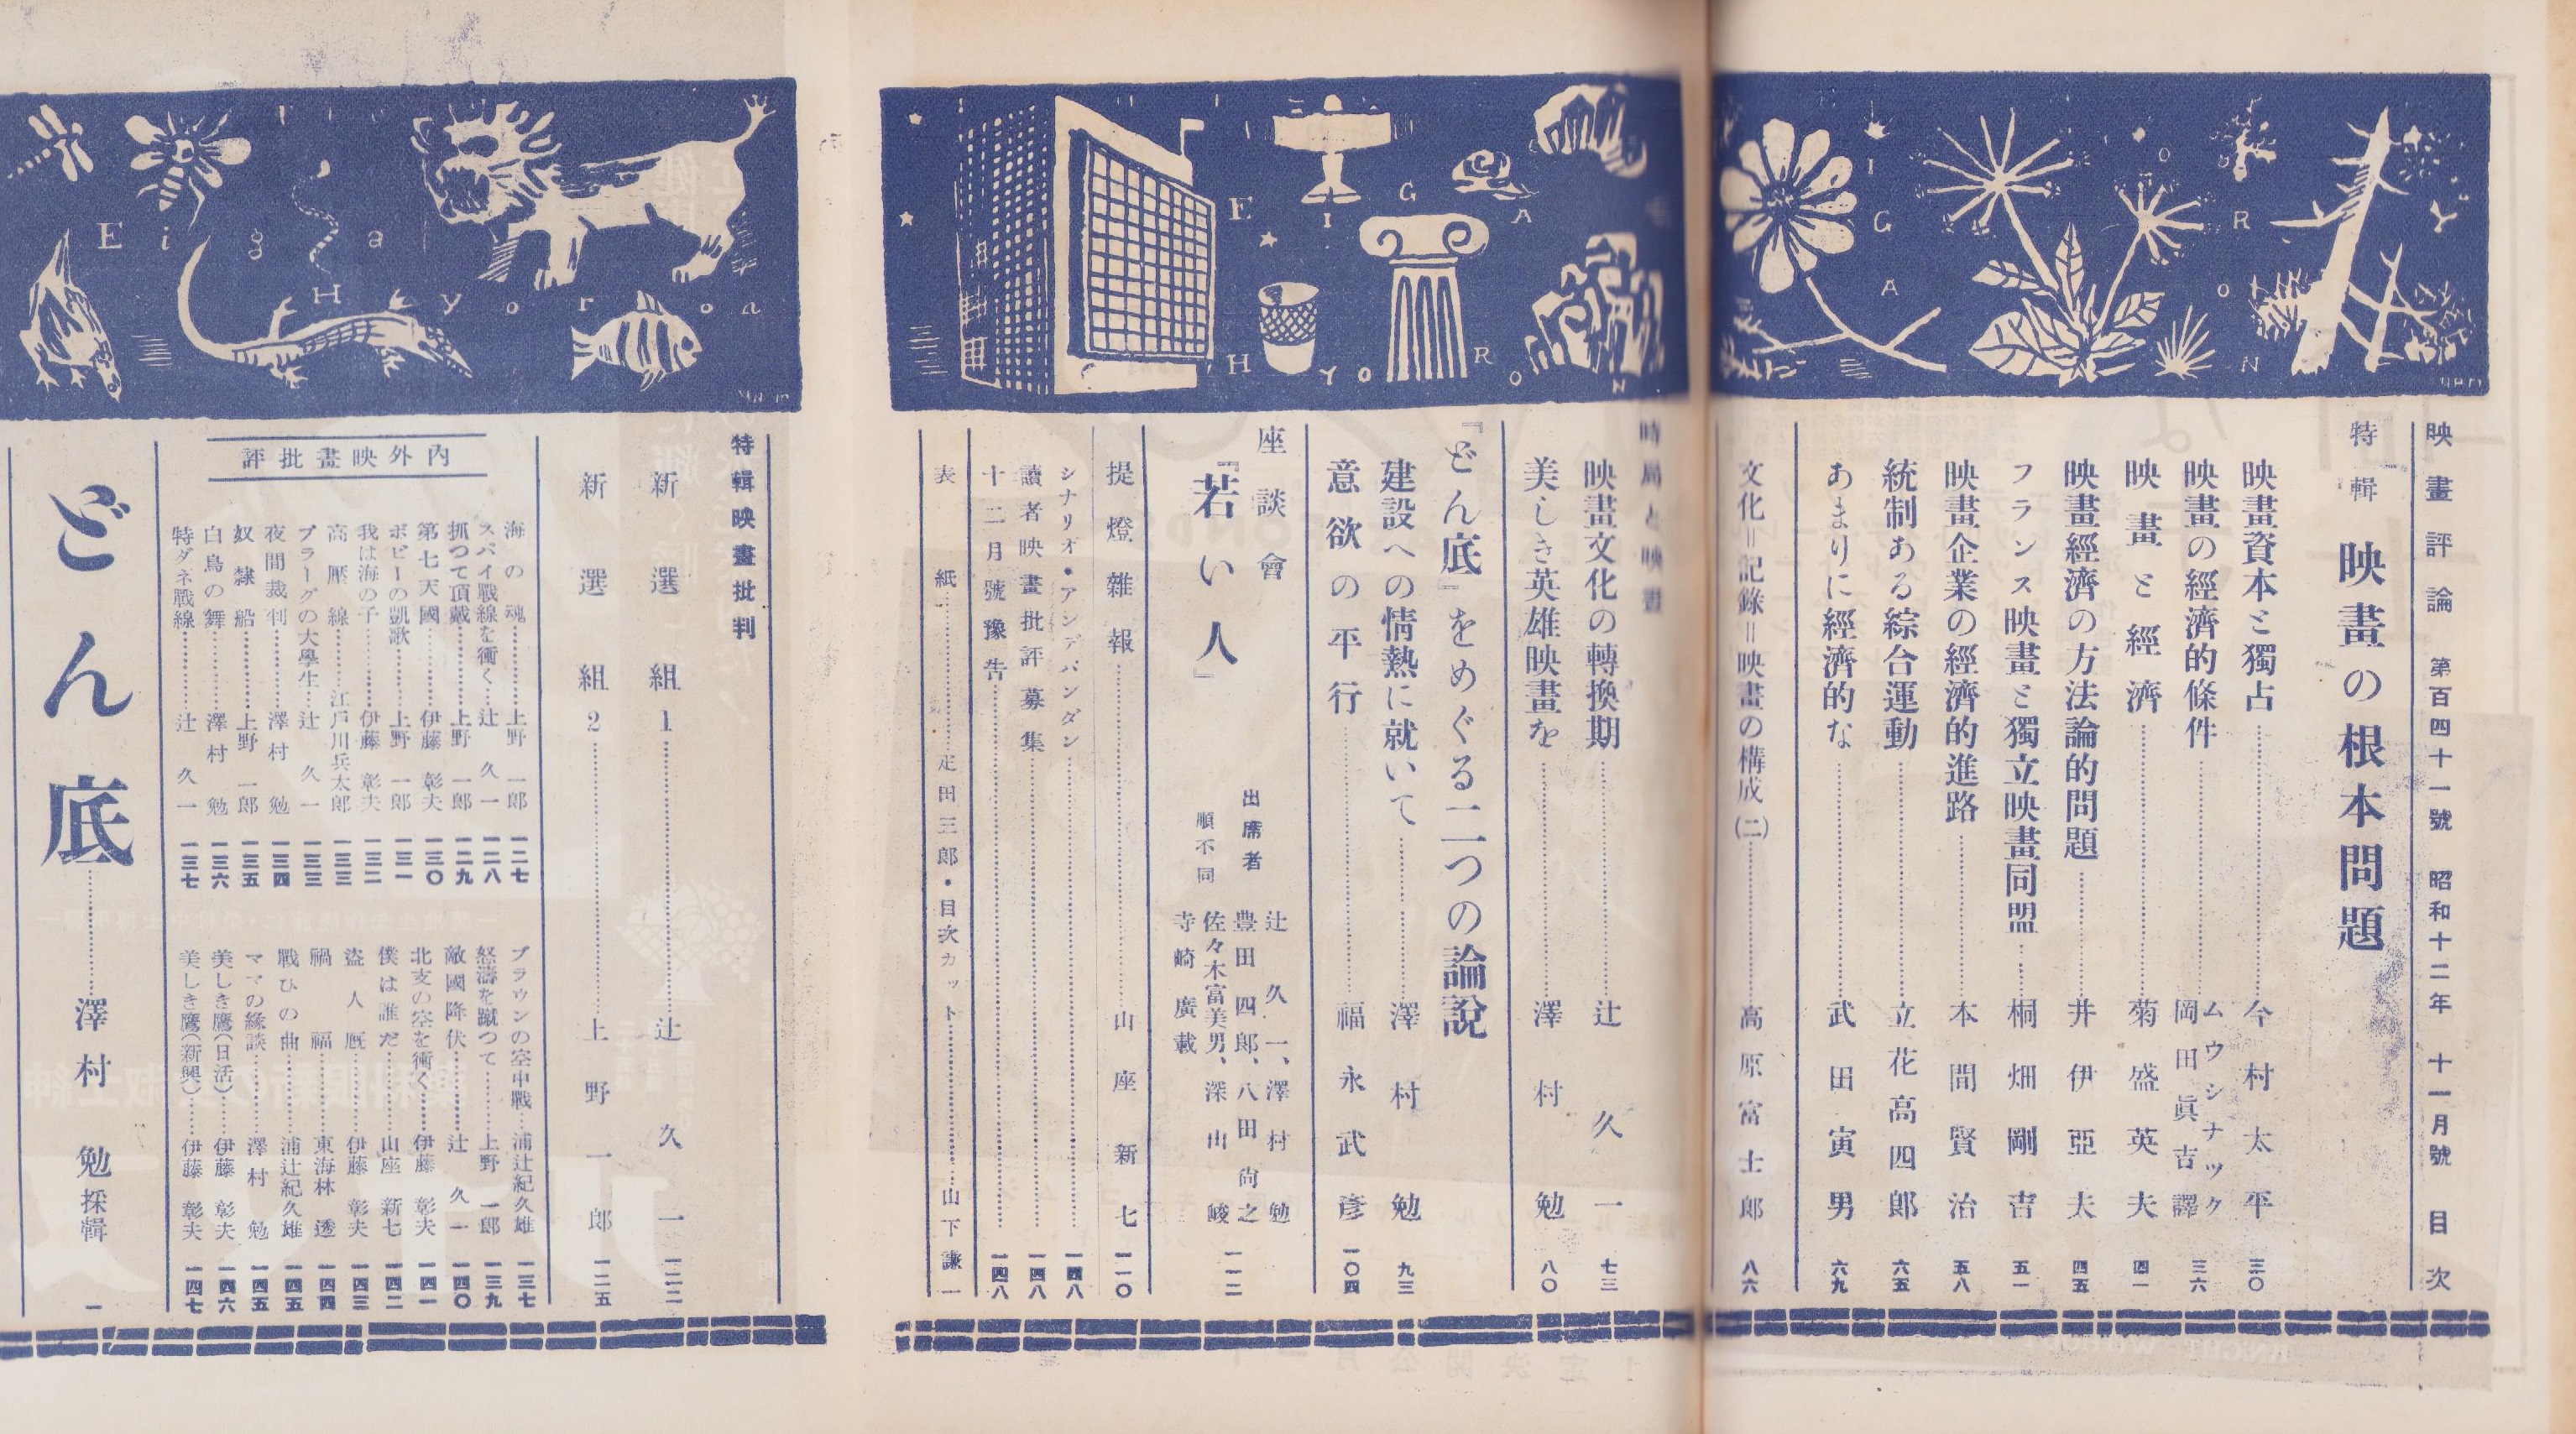 映畫評論 第百四十一號 昭和十二年 十一月號 目次
特輯 映畫の根本問題
映畫資本と獨占……今村太平 三〇
映畫の經濟的條件……ムウシナック 岡田眞吉譯 三六
映畫と經濟……菊盛英夫 四一
映畫經濟の方法論的問題……井伊亞夫 四五
フランス映畫と獨立映畫同盟……桐畑剛吉 五一
映畫企業の經濟的進路……本間賢治 五八
統制ある綜合運動……立花高四郎 六五
あまりに經濟的な……武田寅男 六九
文化=記錄=映畫の構成(二)……高原富士郎 八六
時局と映畫
映畫文化の轉換期……辻久一 七三
美しき英雄映畫を……澤村勉 八〇
『どん底』をめぐる二つの論說
建設への情熱に就いて……澤村勉 九三
意欲の平行……福永武彥 一〇四
座談會
『若い人』
出席者
順不同
辻久一、澤村勉
豊田四郎、八田尙之
佐々木富美男、深山峻
寺崎廣載
一一二
提燈雜報……山座新七 一一〇
シナリオ・アンデパンダン……一四八
讀者映畫批評募集……一四八
十二月號豫告……一四八
表紙……疋田三郎・目次カット……山下謙一
特輯映畫批判
新選組1……辻久一 一二二
新選組2……上野一郎 一二五
內外映畫批評
海の魂……上野一郎 一二七
スパイ戰線を衝く……辻久一 一二八
抓つて頂戴……上野一郎 一二九
第七天國……伊藤彰夫 一三〇
ボビーの凱歌……上野一郎 一三一
我は海の子……伊藤彰夫 一三二
高壓線……江戶川兵太郎 一三三
プラーグの大學生……辻久一 一三三
夜間裁判……澤村勉 一三四
奴隸船……上野一郎 一三五
白鳥の舞……澤村勉 一三六
特ダネ戰線……辻久一 一三七
ブラウンの空中戰……浦辻紀久雄 一三七
怒濤を蹴つて……上野一郎 一三九
敵國降伏……辻久一 一四〇
北支の空を衝く……伊藤彰夫 一四一
僕は誰だ……山座新七 一四二
盜人厩……伊藤彰夫 一四三
禍福……東海林透 一四四
戰ひの曲……浦辻紀久雄 一四五
ママの緣談……澤村勉 一四五
美しき鷹(日活)……伊藤彰夫 一四六
美しき鷹(新興)……伊藤彰夫 一四七
どん底……澤村勉採輯 一
EIGA HYORON
EIGA HYORON
Eiga Hyoron